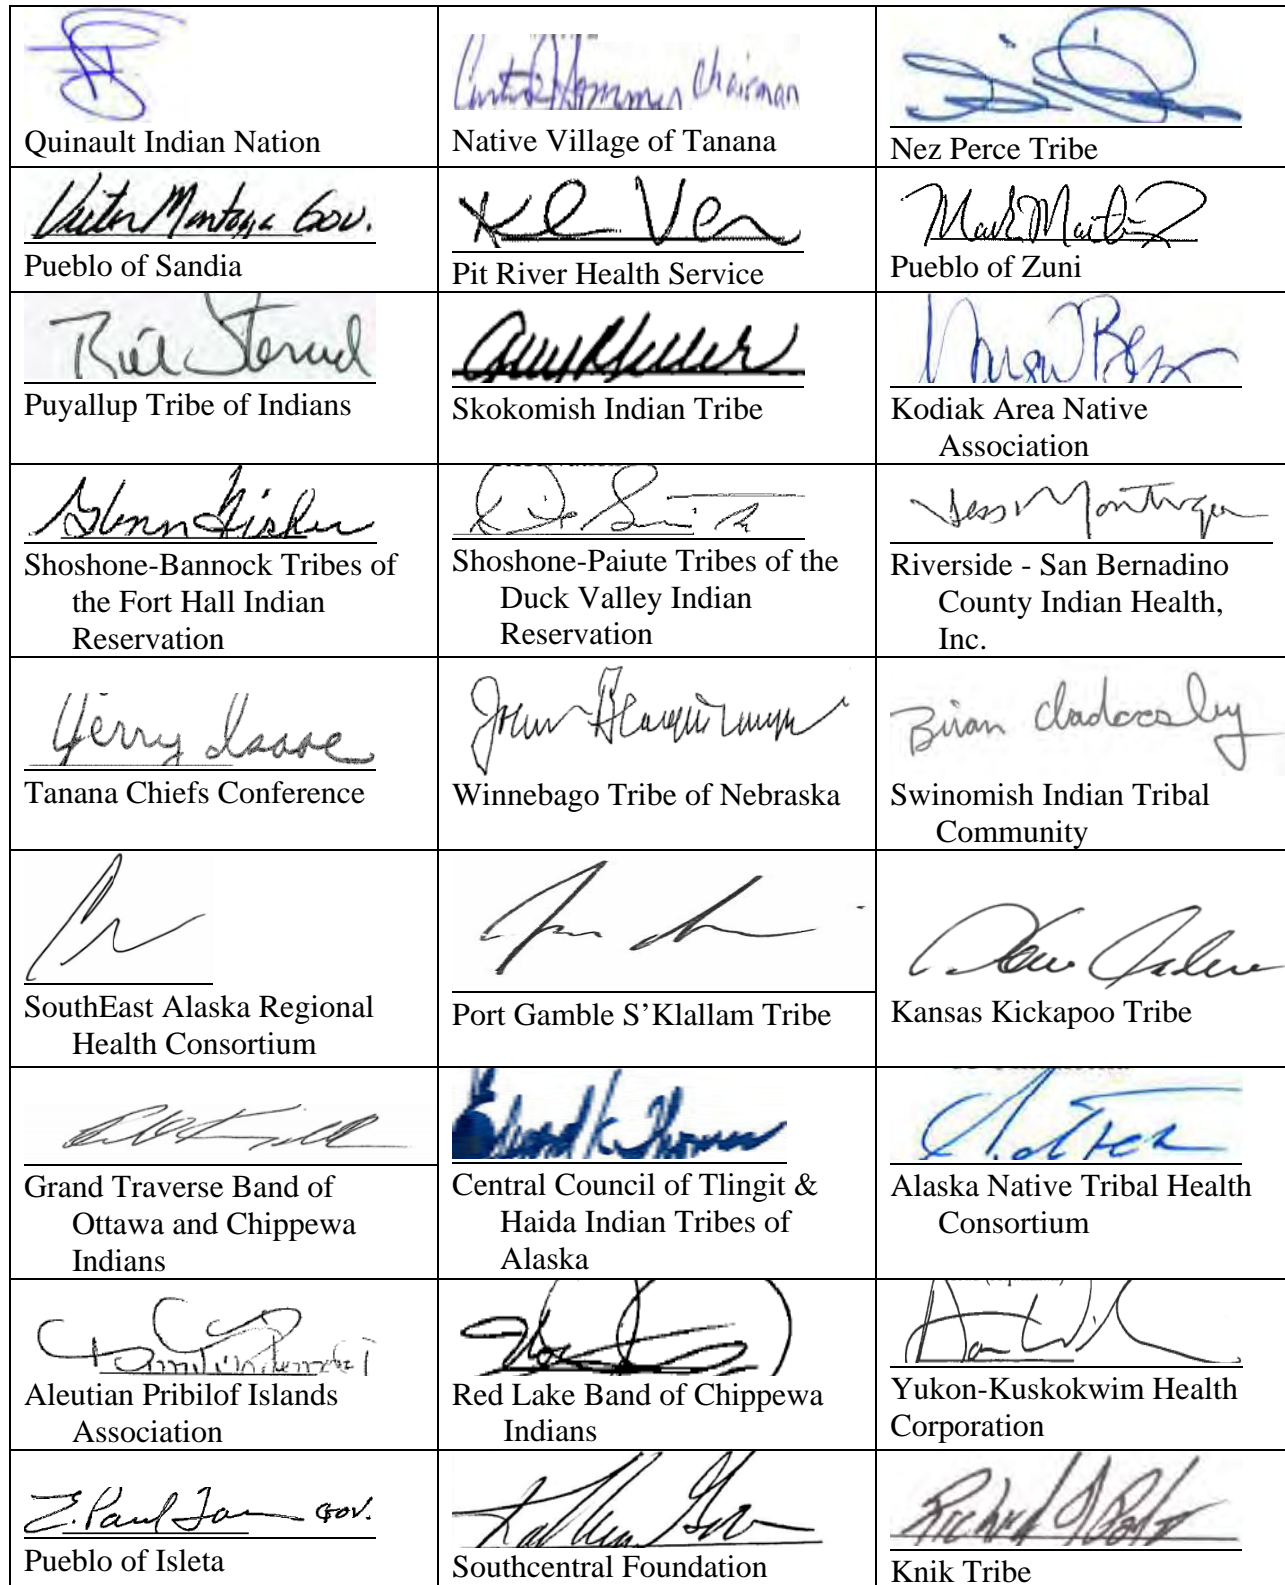 Chairman
Quinault Indian Nation
Native Village of Tanana
Nez Perce Tribe
Victor Montoya Gov.
Pueblo of Sandia
Pit River Health Service
Mark Martinez
Pueblo of Zuni
Puyallup Tribe of Indians
Skokomish Indian Tribe
Kodiak Area Native
Association
Glenn Fisher
Shoshone-Bannock Tribes of
the Fort Hall Indian
Reservation
Shoshone-Paiute Tribes of the
Duck Valley Indian
Reservation
Riverside - San Bernadino
County Indian Health,
Inc.
Jerry Isaac
Tanana Chiefs Conference
John Blackhawk
Winnebago Tribe of Nebraska
Brian Cladoosby
Swinomish Indian Tribal
Community
SouthEast Alaska Regional
Health Consortium
Port Gamble S’Klallam Tribe
Kansas Kickapoo Tribe
Grand Traverse Band of
Ottawa and Chippewa
Indians
Edward K Thomas
Central Council of Tlingit &
Haida Indian Tribes of
Alaska
Alaska Native Tribal Health
Consortium
Aleutian Pribilof Islands
Association
Red Lake Band of Chippewa
Indians
Yukon-Kuskokwim Health
Corporation
E. Paul Gov.
Pueblo of Isleta
Southcentral Foundation
Richard
Knik Tribe